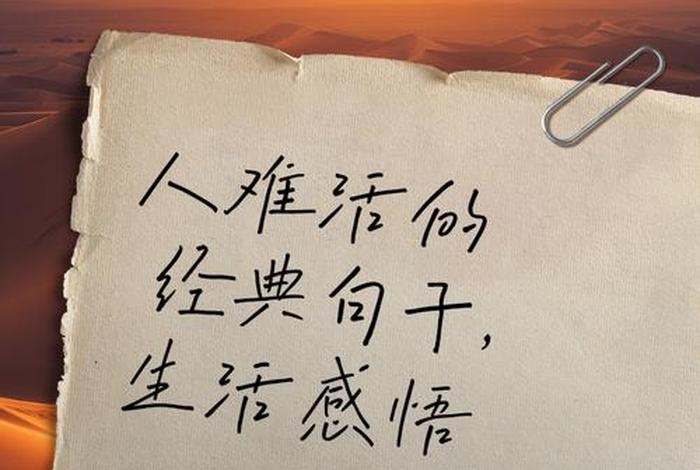 人难活的
经典句子，
生活感悟